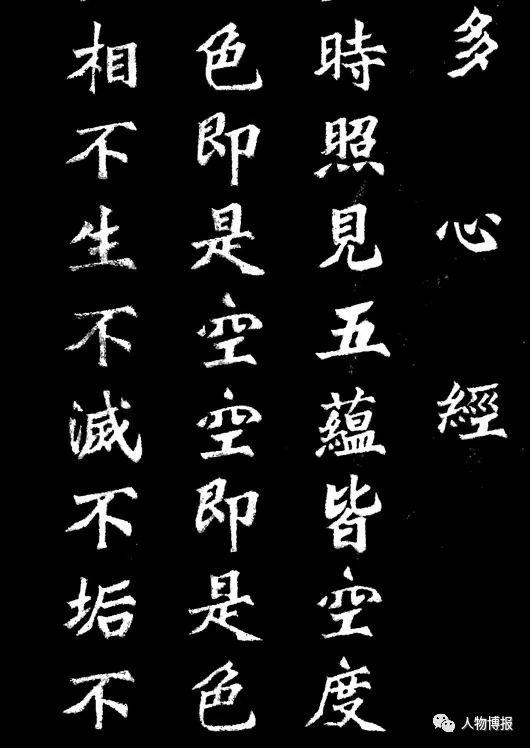 多心經
時照見五蘊皆空度
色即是空空即是色
相不生不滅不垢不
人物博报